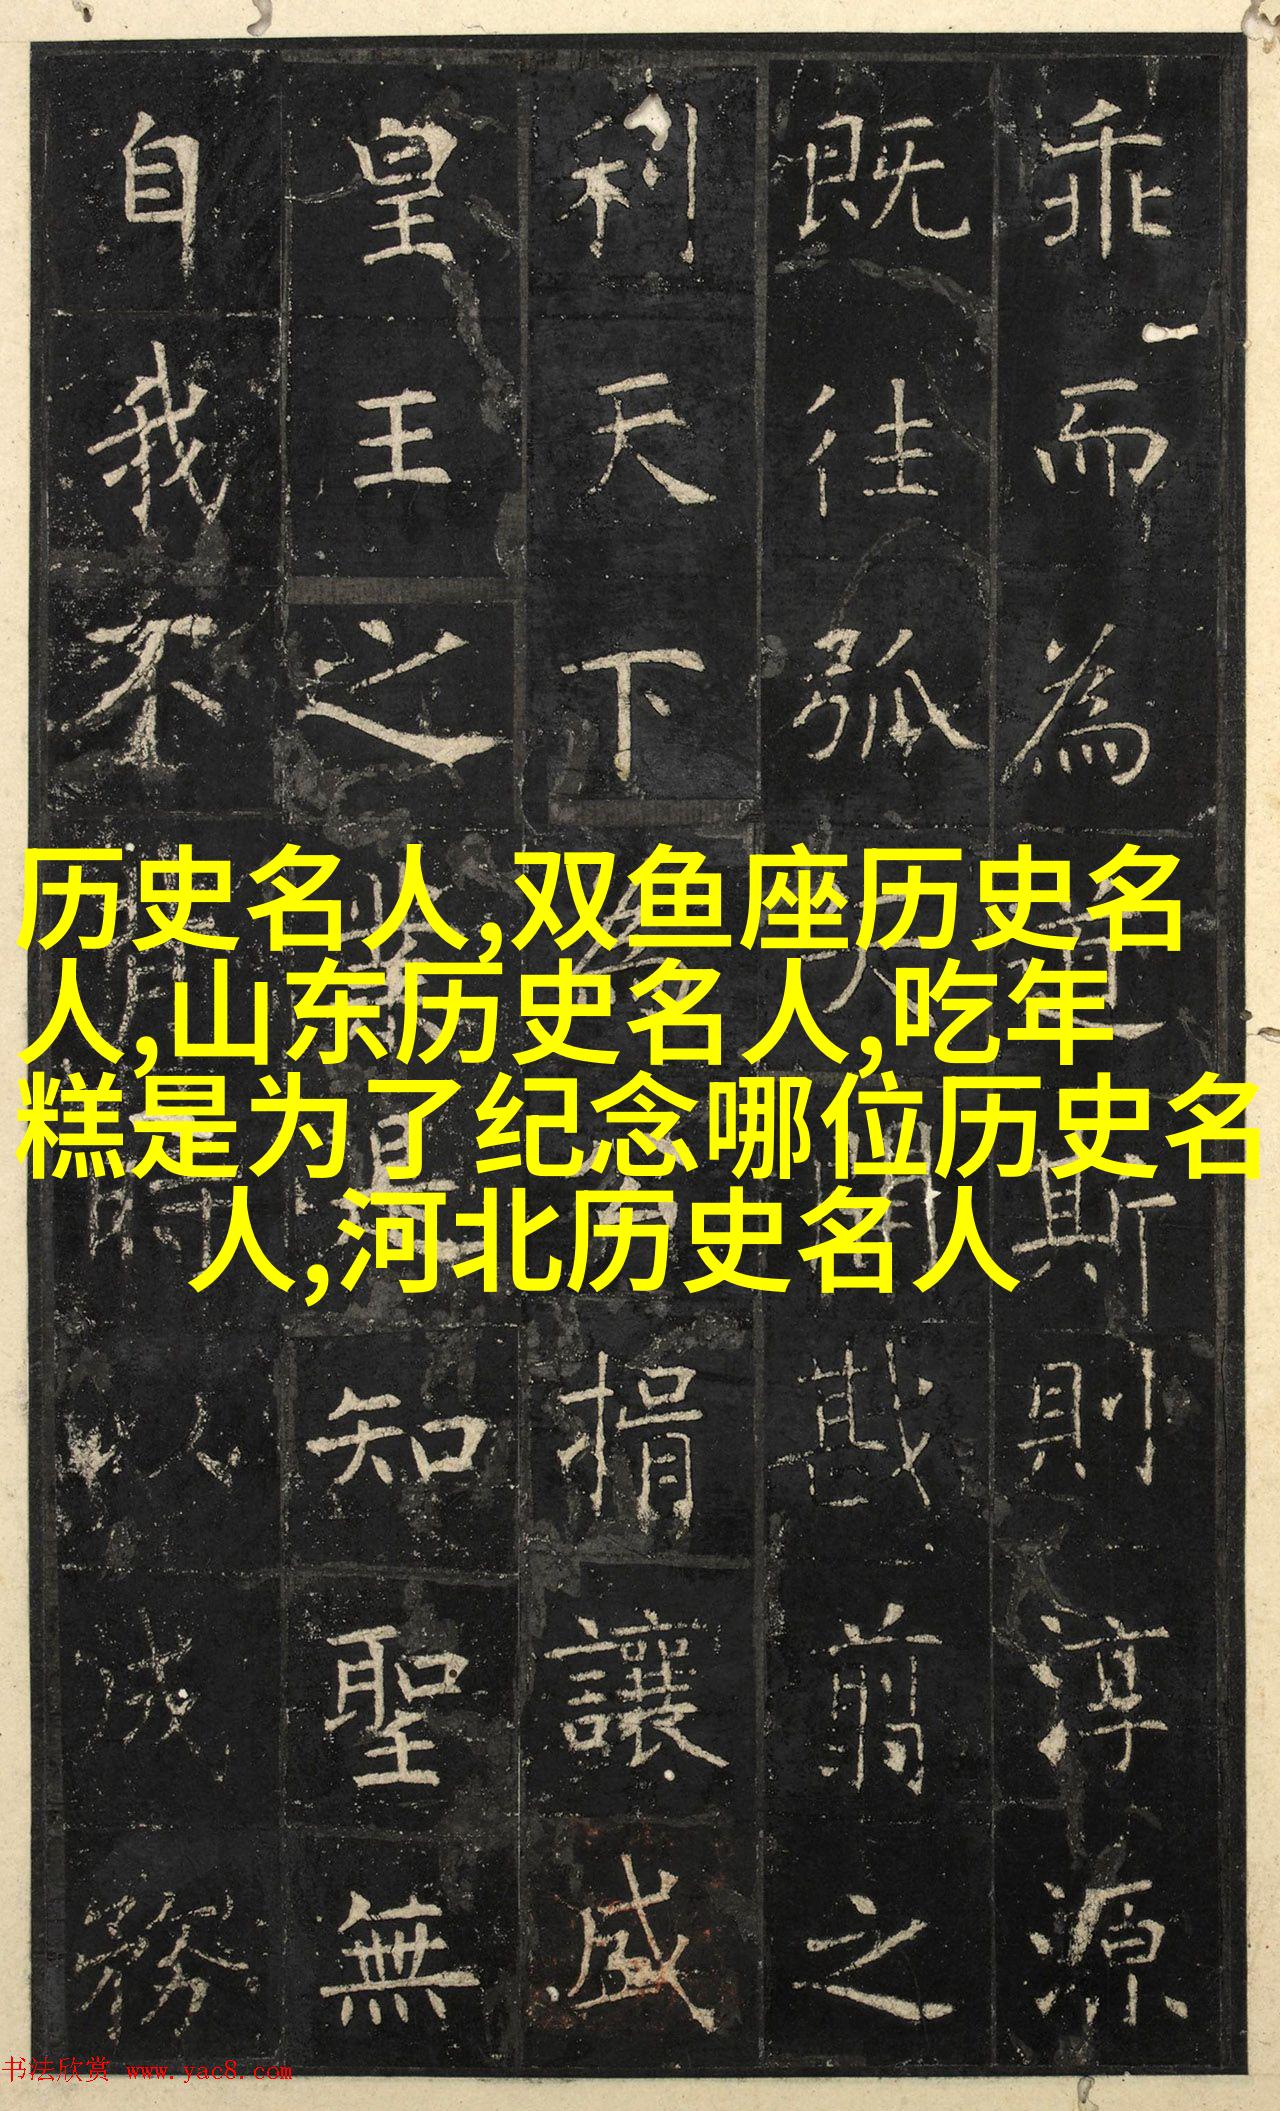 乖而為斯則淳源
既往弧開戡翦之
利天下讓
皇王之知聖無
自我不時
历史名人,双鱼座历史名
人,山东历史名人,吃年
糕是为了纪念哪位历史名
人,河北历史名人
书法欣赏 www.yac8.com